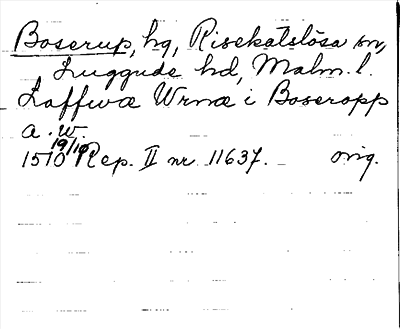 Boserup, hg, Risekatslösa sn,
Luggude hd, Malm. l.
Laffwæ Wrnæ i Boseropp
a. w.
19/10
1510 Rep. II nr 11637. orig.